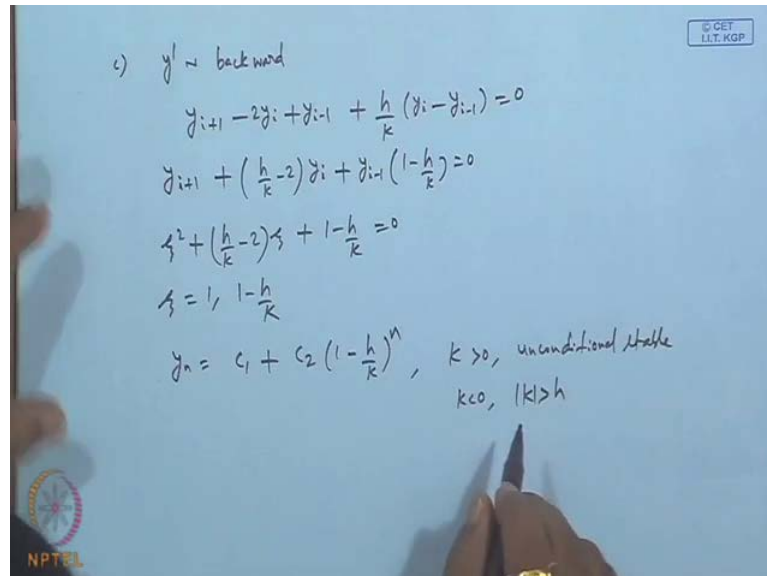 © CET
I.I.T. KGP
c) y' ~ backward
y_{i+1} - 2y_i + y_{i-1} + h/k (y_i - y_{i-1}) = 0
y_{i+1} + (h/k - 2) y_i + y_{i-1} (1 - h/k) = 0
ξ² + (h/k - 2) ξ + 1 - h/k = 0
ξ = 1, 1 - h/k
y_n = c_1 + c_2 (1 - h/k)^n, k >0, unconditional stable
k<0, |k|>h
NPTEL